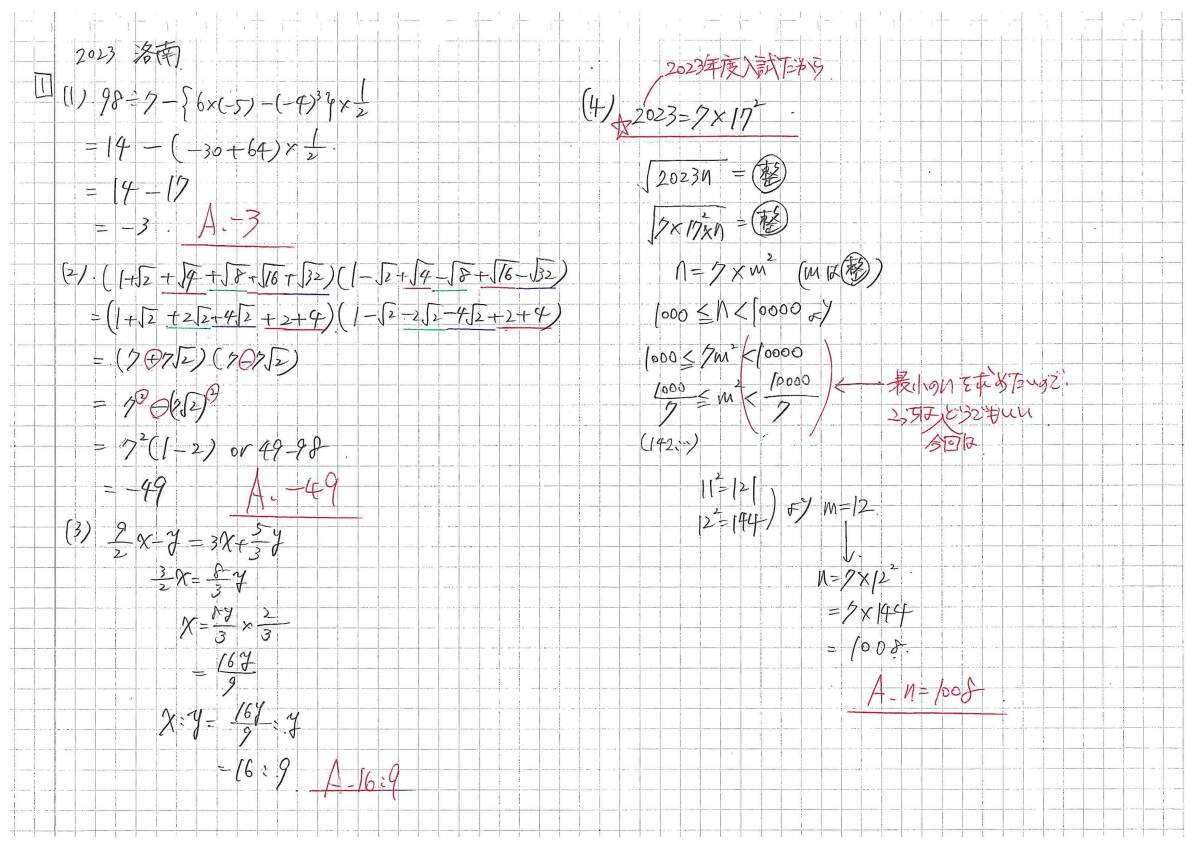 2023 洛南
1
(1). 98÷7-{6×(-5)-(-4)³}×1/2
=14-(-30+64)×1/2.
=14-17
=-3. A.-3
(2).(1+√2+√4+√8+√16+√32)(1-√2+√4-√8+√16-√32)
=(1+√2+2√2+4√2+2+4)(1-√2-2√2-4√2+2+4)
=(7+7√2)(7-7√2)
=7²-(7√2)²
=7²(1-2) or 49-98
=-49 A.-49
(3) 9/2x-y=3x+5/3y
3/2x=8/3y
x=8y/3×2/3
=16y/9
x:y=16y/9:y
=16:9. A-16:9
2023年度入試だから
(4) ☆2023=7×17²
√2023n=整
√7×17²×n=整
n=7×m² (mは整)
1000≦n<10000より
1000≦7m²<10000
1000/7≦m²<10000/7 ← 最小のnを求めたいので、
(142…) こっちはどうでもいい
今回は
11²=121
12²=144 より m=12
↓
n=7×12²
=7×144
=1008.
A-n=1008